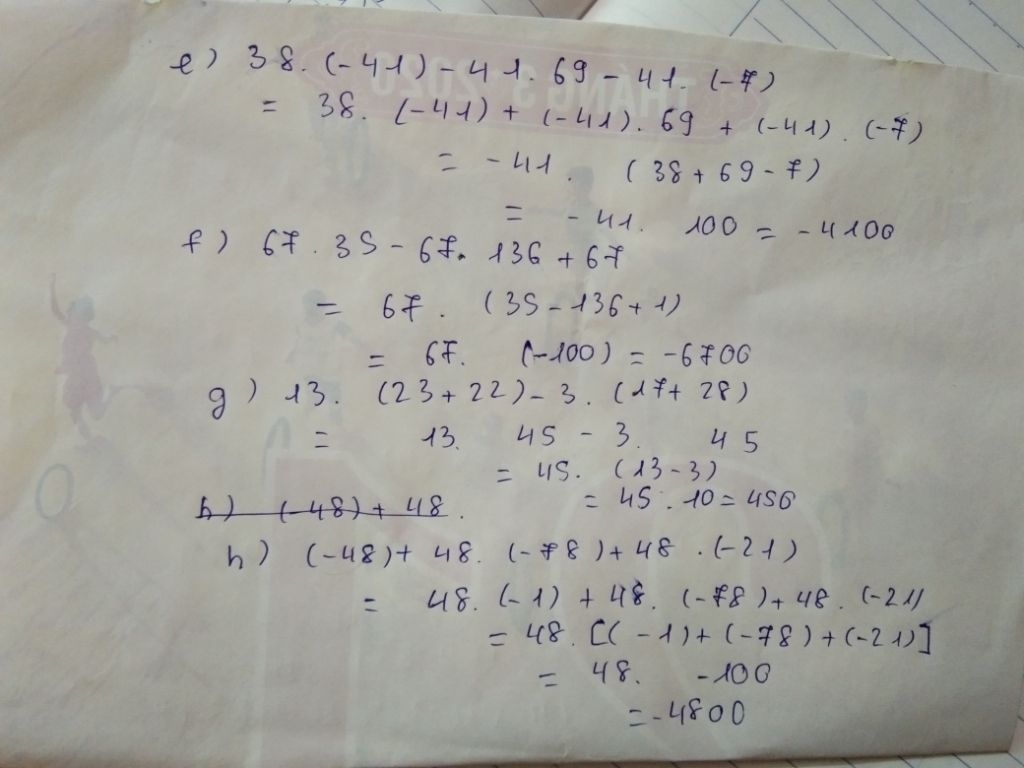 e) 38. (-41) - 41. 69 - 41. (-7)
= 38. (-41) + (-41). 69 + (-41). (-7)
= -41. (38 + 69 - 7)
= -41. 100 = -4100
f) 67. 35 - 67. 136 + 67
= 67. (35 - 136 + 1)
= 67. (-100) = -6700
g) 13. (23 + 22) - 3. (17 + 28)
= 13. 45 - 3. 45
= 45. (13 - 3)
= 45. 10 = 450
h) (-48) + 48.
h) (-48) + 48. (-78) + 48. (-21)
= 48. (-1) + 48. (-78) + 48. (-21)
= 48. [(-1) + (-78) + (-21)]
= 48. -100
= -4800